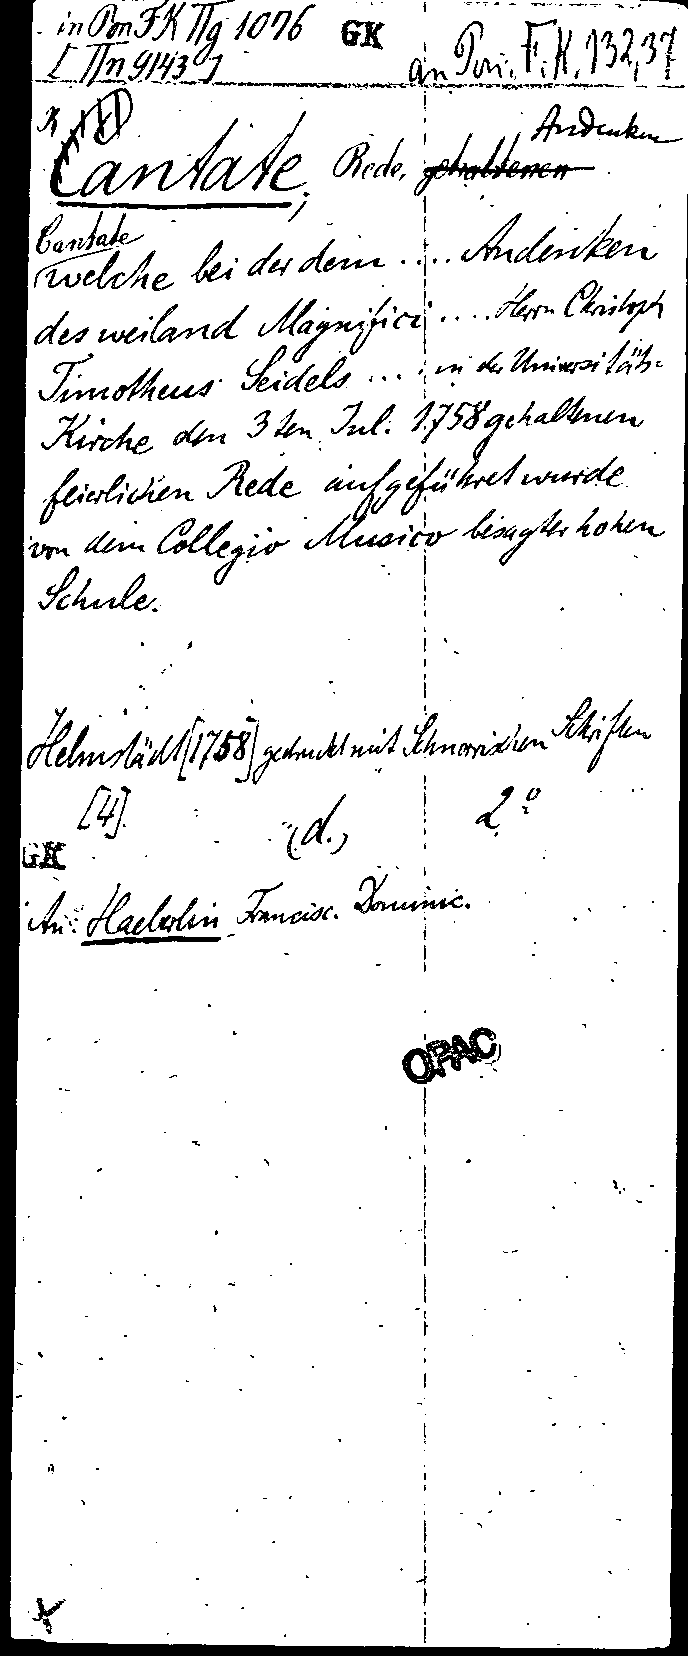 in Pon F.K. IIg 1076 GK
[IIn 9143 g] an Pon. F.K. 132,37
Cantate, Rede, gehaltenen Andenken
Cantate
welche bei der dem .... Andenken
des weiland Magnifici .... Herrn Christoph
Timotheus Seidels ... in der Universitäts-
Kirche den 3ten Jul. 1758 gehaltenen
feierlichen Rede aufgeführet wurde
von dem Collegio Musico besagter hohen
Schule.
Helmstädt [1758] gedruckt mit Schnorrischen Schriften
[4]. (d.) 2°
GK
An: Haeberlin Francisc. Dominic.
OPAC